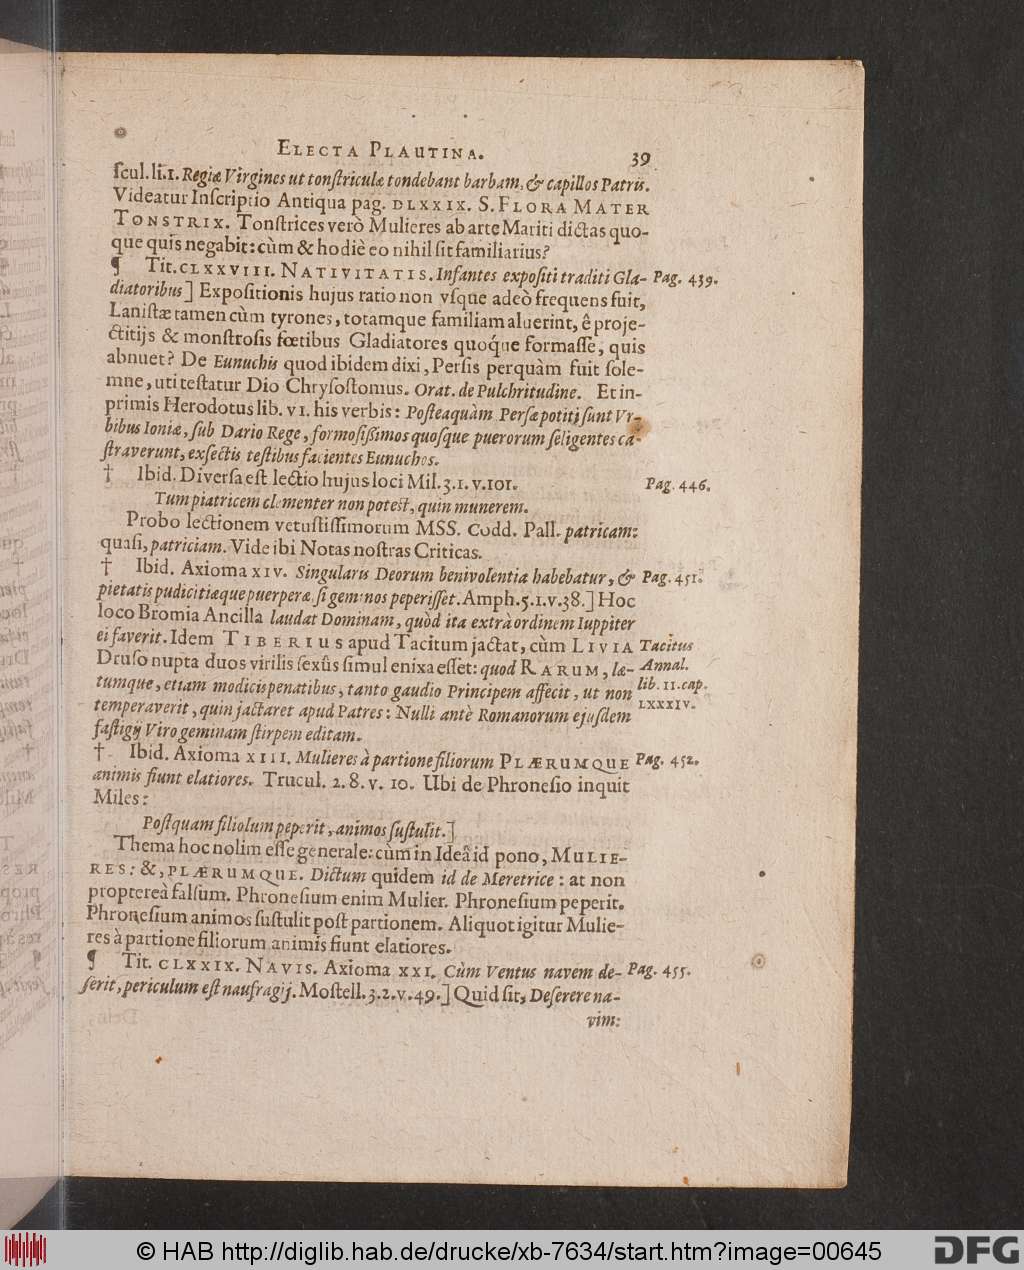 ELECTA PLAUTINA. 39
ſcul. li. 1. Regiæ Virgines ut tonſtriculæ tondebant barbam, & capillos Patris.
Videatur Inſcriptio Antiqua pag. DLXXIX. S. FLORA MATER
TONSTRIX. Tonſtrices verò Mulieres ab arte Mariti dictas quo-
que quis negabit: cùm & hodiè eo nihil ſit familiarius?
¶ Tit. CLXXVIII. NATIVITATIS. Infantes expoſiti traditi Gla- Pag. 439.
diatoribus] Expoſitionis hujus ratio non vſque adeò frequens fuit,
Laniſtæ tamen cùm tyrones, totamque familiam aluerint, ê proje-
ctitijs & monſtroſis fœtibus Gladiatores quoq́ue formaſſe, quis
abnuet? De Eunuchis quod ibidem dixi, Perſis perquàm fuit ſole-
mne, uti teſtatur Dio Chryſoſtomus. Orat. de Pulchritudine. Et in-
primis Herodotus lib. VI. his verbis: Poſteaquàm Perſæ potitj ſunt Vr-
bibus Ioniæ, ſub Dario Rege, formoſiſſimos quoſque puerorum ſeligentes ca-
ſtraverunt, exſectis teſtibus facientes Eunuchos.
† Ibid. Diverſa eſt lectio hujus loci Mil. 3. 1. v. 101. Pag. 446.
Tum piatricem clementer non poteſt, quin munerem.
Probo lectionem vetuſtiſſimorum MSS. Codd. Pall. patricam:
quaſi, patriciam. Vide ibi Notas noſtras Criticas.
† Ibid. Axioma XIV. Singularis Deorum benivolentia habebatur, & Pag. 451.
pietatis pudicitiæque puerperæ, ſi geminos peperiſſet. Amph. 5. 1. v. 38.] Hoc
loco Bromia Ancilla laudat Dominam, quòd ita extrà ordinem Iuppiter
ei faverit. Idem TIBERIUS apud Tacitum jactat, cùm LIVIA Tacitus
Druſo nupta duos virilis ſexûs ſimul enixa eſſet: quod RARUM, læ- Annal.
tumque, etiam modicis penatibus, tanto gaudio Principem affecit, ut non lib. II. cap.
temperaverit, quin jactaret apud Patres: Nulli antè Romanorum ejuſdem LXXXIV.
faſtigij Viro geminam ſtirpem editam.
† Ibid. Axioma XIII. Mulieres à partione filiorum PLÆRUMQUE Pag. 452.
animis fiunt elatiores. Trucul. 2. 8. v. 10. Ubi de Phroneſio inquit
Miles:
Poſtquam filiolum peperit, animos ſuſtulit.]
Thema hoc nolim eſſe generale: cùm in Ideâ id pono, MULIE-
RES: &, PLÆRUMQUE. Dictum quidem id de Meretrice: at non
proptereà falſum. Phroneſium enim Mulier. Phroneſium peperit.
Phroneſium animos ſuſtulit poſt partionem. Aliquot igitur Mulie-
res à partione filiorum animis fiunt elatiores.
¶ Tit. CLXXIX. NAVIS. Axioma XXI. Cùm Ventus navem de- Pag. 455.
ſerit, periculum eſt naufragij. Moſtell. 3. 2. v. 49.] Quid ſit, Deſerere na-
vim:
© HAB http://diglib.hab.de/drucke/xb-7634/start.htm?image=00645
DFG